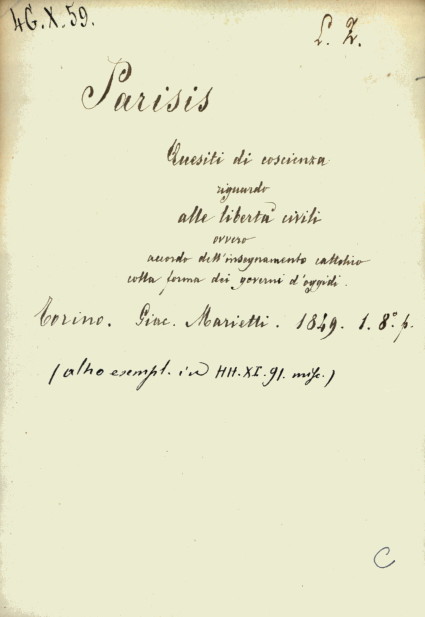 4G.X.59.
L. Z.
Parisis
Quesiti di coscienza
riguardo
alle libertà civili
ovvero
accordo dell'insegnamento cattolico
colla forma dei governi d'oggidi.
Torino. Giac. Marietti. 1849. 1. 8.° p.
(altro esempl. in HH.XI.91. misc.)
C